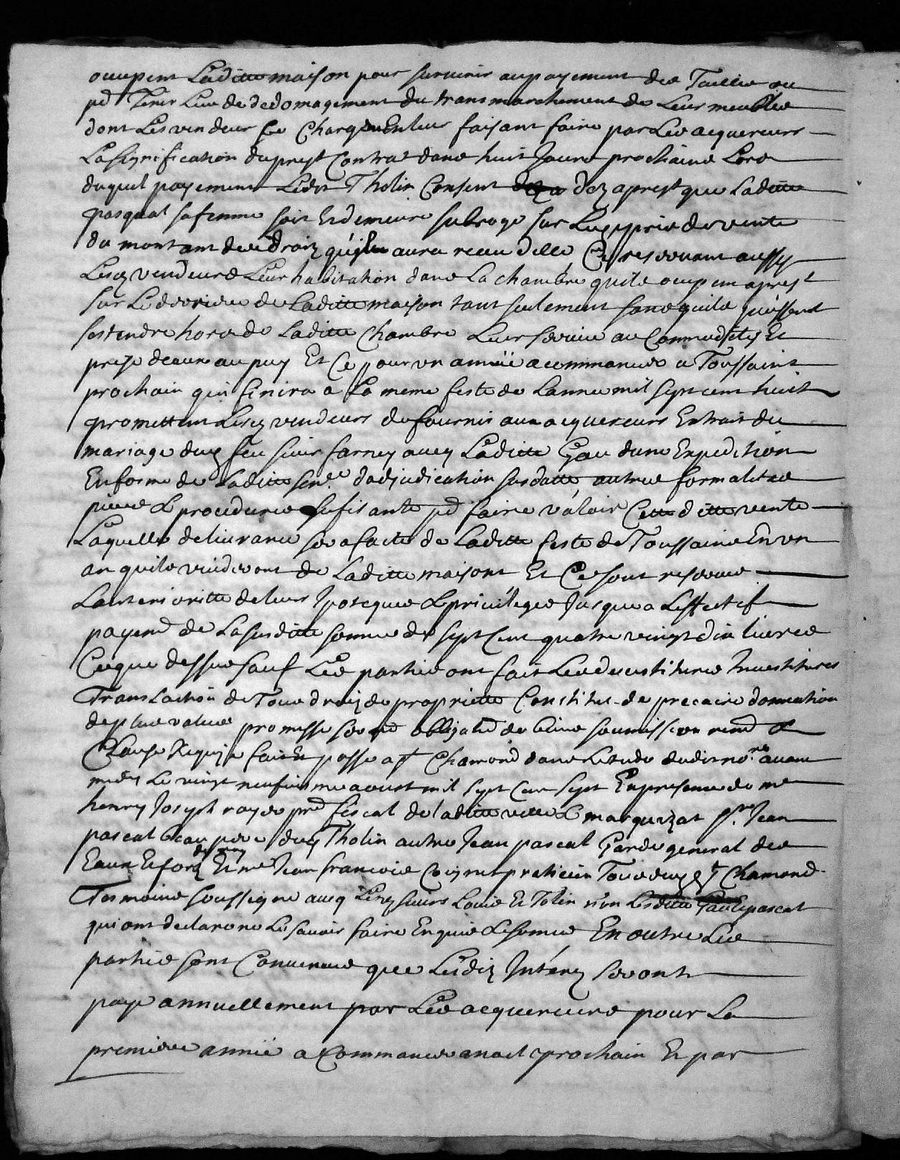 ocupent Laditte maison pour survenir au payement des Tailles ou
pd Tenir Lieu de dedomagement du transmarchement de Leurs meubles
dont Les vendeurs se Chargent En leur faisant faire par Les acquereurs
La signification du prest Contrat dans huit Jours prochains Lors
duquel payement Ledit Tholin Consent dez a prest que Laditte
pasqual sa femme soit Et demeure subroge sur Le prix de vente
du montant des droiz quil aura receu delle Ce reservant aussy
Lesd vendeurs Leur habitation dans La chambre quils ocupent a prest
sur Le derrier de Laditte maison tant seulement sans quils puissent
sestendre hors de Laditte Chambre Leur servira au Commodités Et
prise deaue au puy Et Ce pour un année a commancer a Toussaint
prochain qui finira a La meme feste de Lannee mil sept cent huit
promettent Lesd vendeurs de fournir aux acquereurs Extrait du
mariage dud feu sieur farney avec Laditte Gau dune Expedition
En forme de Laditte sence dadjudication susdatte autres formalites
pieces & procedures sufisante pd faire valoir Cette ditte vente
Laquelle delivrance sera faite de Laditte feste de Toussaint En un
an quils vuideront de Laditte maisont Et Ce sont reserves
Lanterioritte de leurs Ipoteques & privilege Jusques a Leffectif
payemt de La susditte somme de sept Cent quatre vingt dix livres
Ce que dessus sauf Les parties ont fait Les devestitures Investitures
Translation de Tous droiz de propriette Constitut de precaire donnation
de plus values promesse serment obligatn de biens soumission renon &
Clauses Requises fait Et passe a St Chamond dans Lestude dudit nore avant
midy Le vingt neufiesme aoust mil sept Cent sept En presence de me
henry Joseph rayos pre fiscal de laditte ville & marquizat sr Jean
pascal beau pere dud Tholin autre Jean pascal Garde general des
Eaux Et forez Et me Jean francois Coignet praticien Tous dud St Chamond
Tesmoins soussigne avec Lesd sieurs Louis Et Tolin non Laditte Gau Et pascal
qui ont declare ne Le savoir faire Enquis & somes En outre Les
parties sont Convenues que Lesdiz Intérez seront
paye annuellement par Les acquereurs pour La
premiere année a Commancer a noel prochain Et par